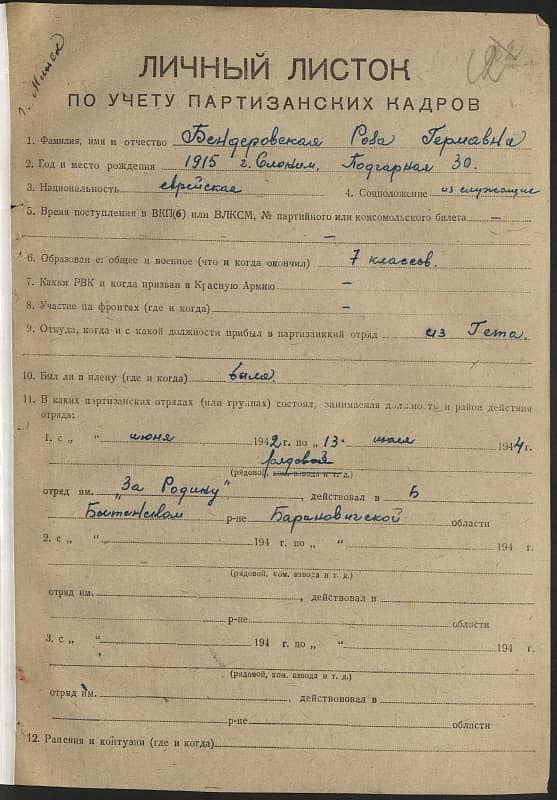 г. Минск
ЛИЧНЫЙ ЛИСТОК
ПО УЧЕТУ ПАРТИЗАНСКИХ КАДРОВ
1. Фамилия, имя и отчество Бендеровская Роза Германна
2. Год и место рождения 1915 г. Слоним. Подгарная 30.
3. Национальность еврейская 4. Соцположение из служащие
5. Время поступления в ВКП(б) или ВЛКСМ, № партийного или комсомольского билета —
—
6. Образован е: общее и военное (что и когда окончил) 7 классов.
7. Каким РВК и когда призван в Красную Армию —
8. Участие на фронтах (где и когда) —
9. Откуда, когда и с какой должности прибыл в партизанкий отряд из Гета.
10. Был ли в плену (где и когда) была.
11. В каких партизанских отрядах (или группах) состоял, занимаемая должность и район действия
отряда:
1. с „ “ июня 1942 г. по „ 13 “ июля 1944 г.
рядовой
(рядовой, ком. взвода и т. д.)
отряд им. „За Родину“, действовал в Б
Бытенском р-не Барановичской области
2. с „ “ 194 г. по „ “ 194 г.
(рядовой, ком. взвода и т. д.)
отряд им. , действовал в
р-не области
3. с „ “ 194 г. по „ “ 194 г.
(рядовой, ком. взвода и т. д.)
отряд им. , действововал в
р-не области
12. Ранения и контузии (где и когда)